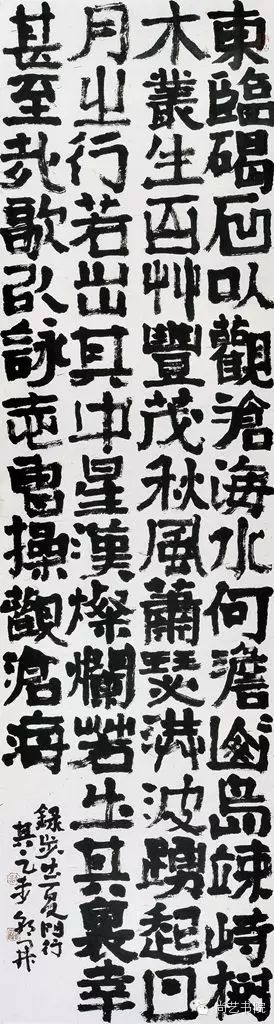 東臨碣石以觀滄海水何澹山島竦峙樹
木叢生百艸豐茂秋風蕭瑟洪波踴起日
月之行若出其中星漢燦爛若出其裏幸
甚至哉歌以詠志曹操觀滄海
錄步出夏門行
其一乙未
尚艺书院